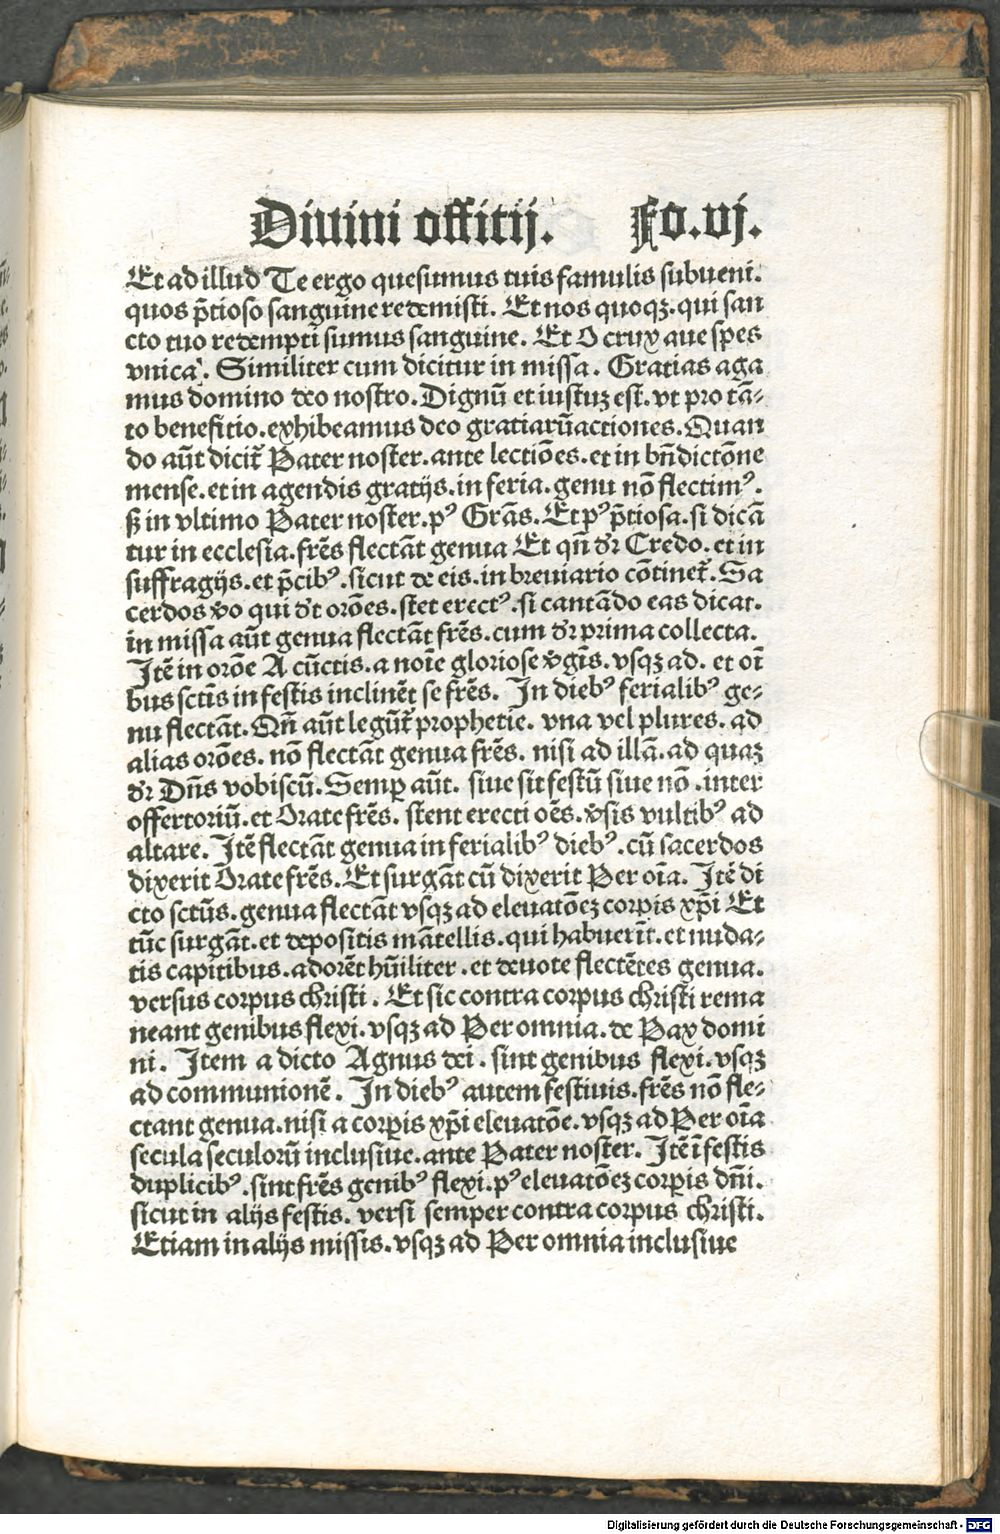 Diuini offitij. Fo.vj.
Et ad illud Te ergo quesumus tuis famulis subueni.
quos p̄tioso sanguine redemisti. Et nos quoqꝫ. qui san
cto tuo redempti sumus sanguine. Et O crux aue spes
vnica. Similiter cum dicitur in missa. Gratias aga
mus domino deo nostro. Dignū et iustuꝫ est. vt pro tā⸗
to benefitio. exhibeamus deo gratiarū actiones. Quan
do aūt dicit᷑ Pater noster. ante lectiōes. et in bn̄dictōne
mense. et in agendis gratijs. in feria. genu nō flectimꝰ.
sꝫ in vltimo Pater noster. pꝰ Grās. Et pꝰ p̄tiosa. si dicā
tur in ecclesia. frēs flectāt genua Et qn̄ dr̄ Credo. et in
suffragijs. et p̄cibꝰ. sicut de eis. in breuiario cōtinet᷑. Sa
cerdos v̄o qui dt̄ orōes. stet erectꝰ. si cantādo eas dicat.
in missa aūt genua flectāt frēs. cum dr̄ prima collecta.
Itē in orōe A cūctis. a noīe gloriose v̄gīs. vsqꝫ ad. et oī
bus sctīs in festis inclinēt se frēs. In diebꝰ ferialibꝰ ge⸗
nu flectāt. Qn̄ aūt legūt᷑ prophetie. vna vel plures. ad
alias orōes. nō flectāt genua frēs. nisi ad illā. ad quaꝫ
dr̄ Dn̄s vobiscū. Semp̱ aūt. siue sit festū siue nō. inter
offertoriū. et Orate frēs. stent erecti oēs. v̄sis vultibꝰ ad
altare. Itē flectāt genua in ferialibꝰ diebꝰ. cū sacerdos
dixerit Orate frēs. Et surgāt cū dixerit Per oīa. Itē di
cto sctūs. genua flectāt vsqꝫ ad eleuatōeꝫ corp̱is xp̄i Et
tūc surgāt. et depositis mātellis. qui habuerīt. et nuda⸗
tis capitibus. adorēt hūiliter. et deuote flectētes genua.
versus corpus christi. Et sic contra corpus christi rema
neant genibus flexi. vsqꝫ ad Per omnia. de Pax domi
ni. Item a dicto Agnus dei. sint genibus flexi. vsqꝫ
ad communionē. In diebꝰ autem festiuis. frēs nō fle⸗
ctant genua. nisi a corp̱is xp̄i eleuatōe. vsqꝫ ad Per oīa
secula seculorū inclusiue. ante Pater noster. Itē ī festis
duplicibꝰ. sint frēs genibꝰ flexi. pꝰ eleuatōeꝫ corp̱is dn̄i.
sicut in alijs festis. versi semper contra corpus christi.
Etiam in alijs missis. vsqꝫ ad Per omnia inclusiue
Digitalisierung gefördert durch die Deutsche Forschungsgemeinschaft - DFG